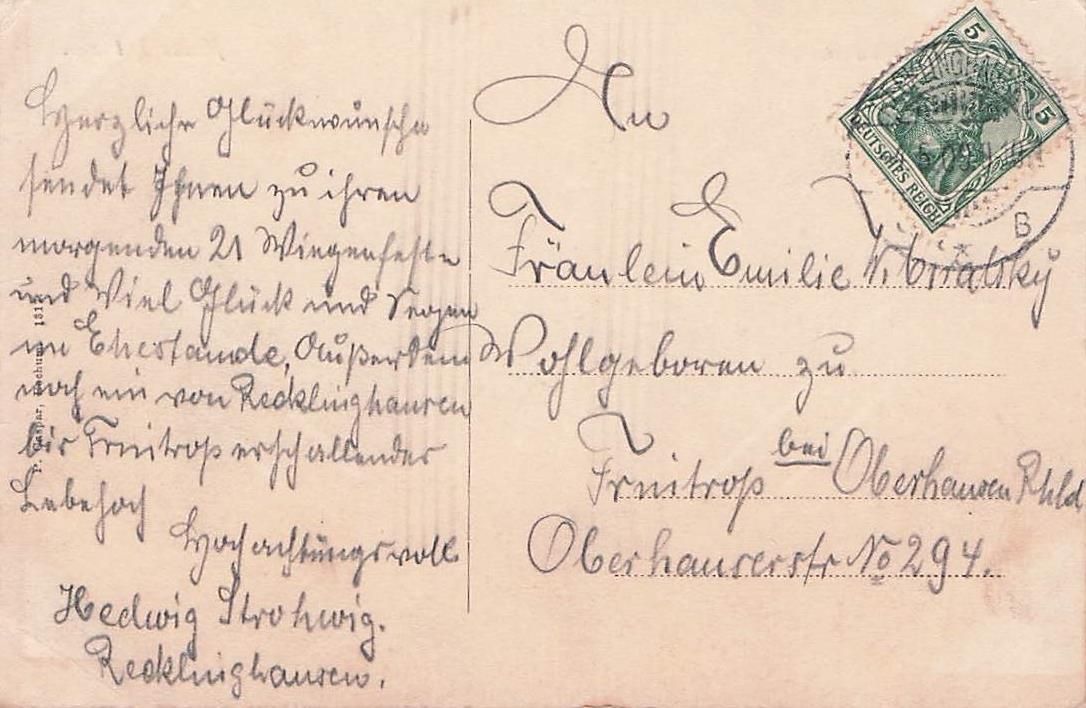 Herzliche Glückwünsche
sendet Ihnen zu ihren
morgenden 21 Wiegenfeste
und Viel Glück und Segen
im Ehestande, Außerdem
noch ein von Recklinghausen
bis Frintrop erschallendes
Lebehoch
Hochachtungsvoll
Hedwig Strohwig.
Recklinghausen.
An
Fräulein Emilie
Wohlgeboren zu
Frintrop bei Oberhausen Rhld
Oberhauserstr No 294.
5
5
DEUTSCHES REICH
B